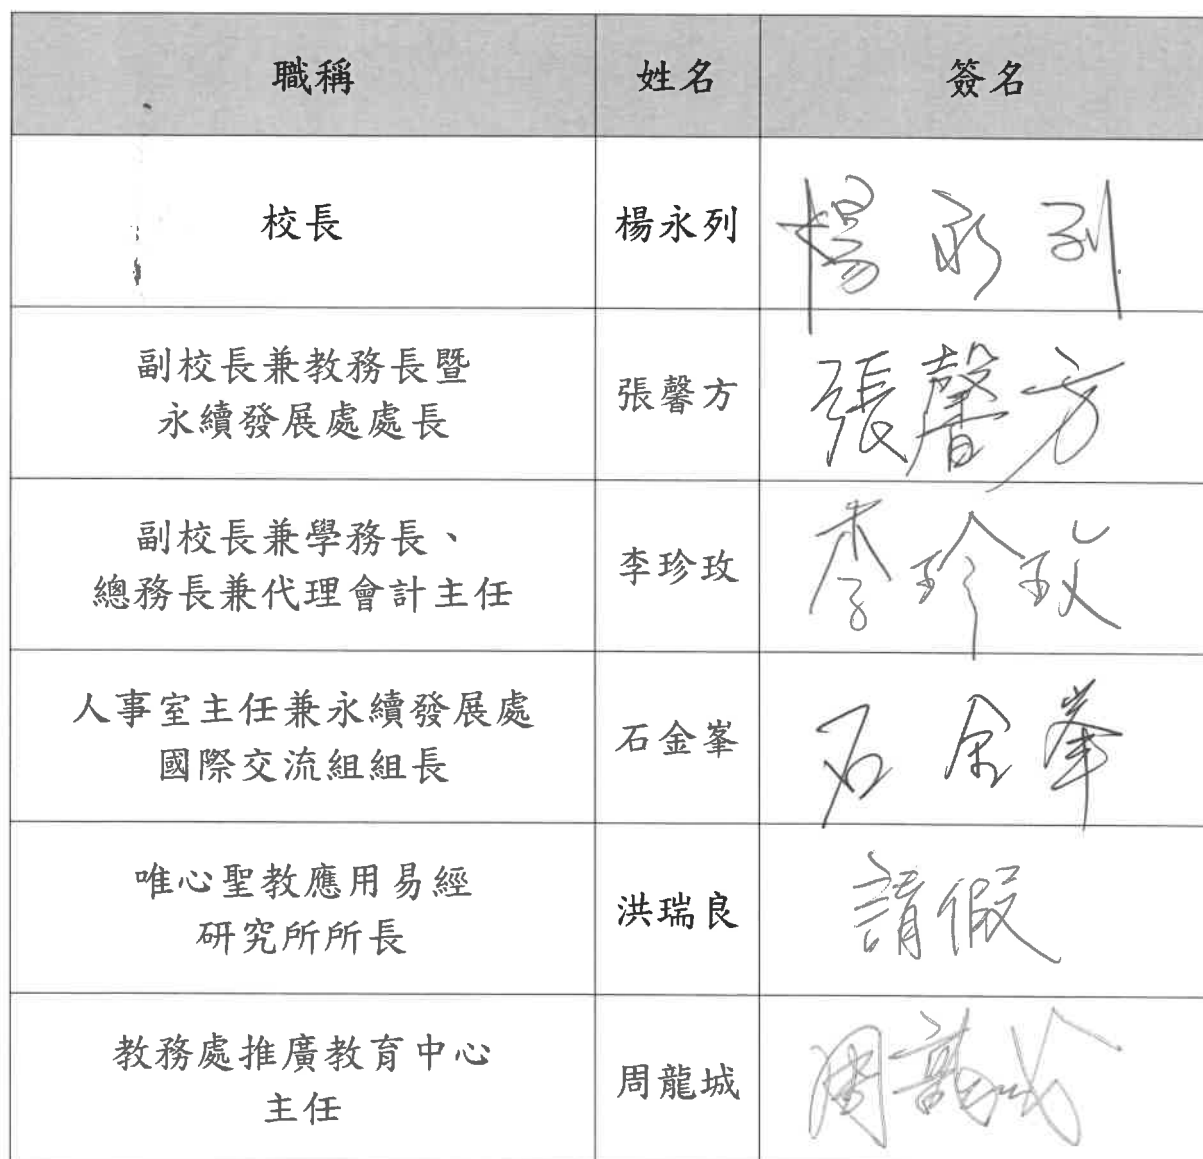 職稱 姓名 簽名
校長 楊永列 楊永列
副校長兼教務長暨
永續發展處處長 張馨方 張馨方
副校長兼學務長、
總務長兼代理會計主任 李珍玫 李珍玫
人事室主任兼永續發展處
國際交流組組長 石金峯 石金峯
唯心聖教應用易經
研究所所長 洪瑞良 請假
教務處推廣教育中心
主任 周龍城 周龍城